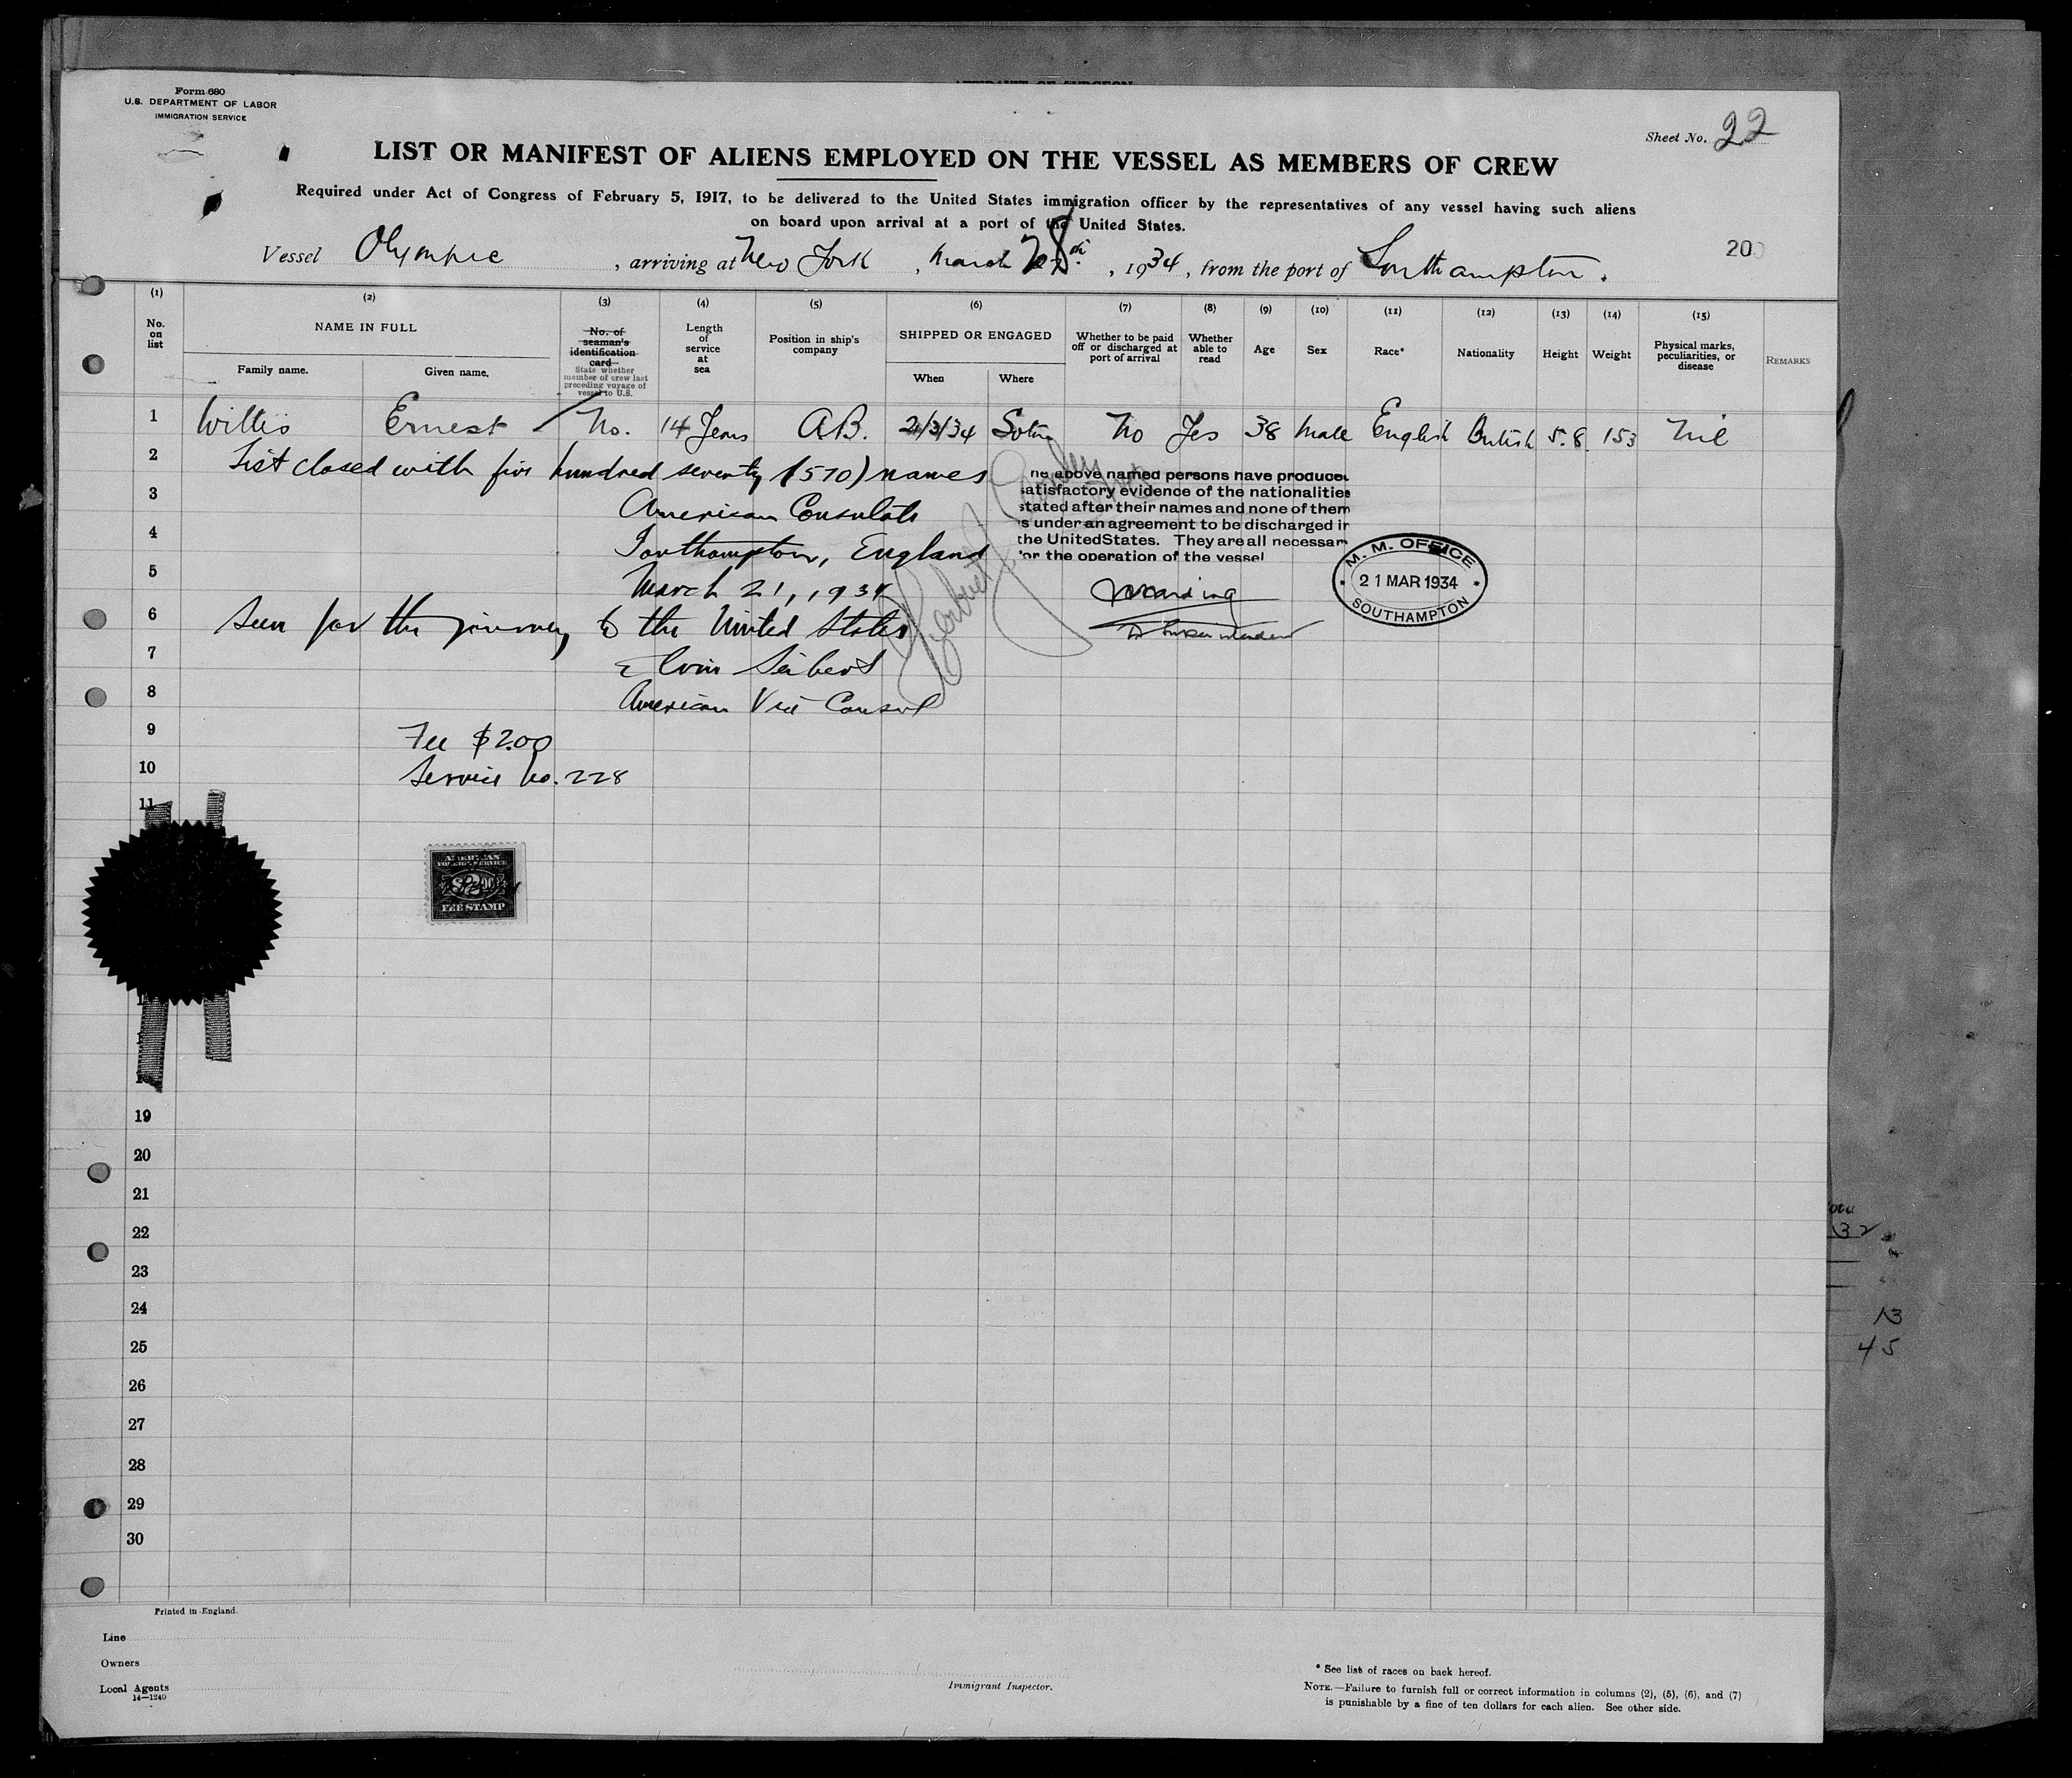 Form 680
U.S. DEPARTMENT OF LABOR
IMMIGRATION SERVICE
Sheet No. 22
LIST OR MANIFEST OF ALIENS EMPLOYED ON THE VESSEL AS MEMBERS OF CREW
Required under Act of Congress of February 5, 1917, to be delivered to the United States immigration officer by the representatives of any vessel having such aliens
on board upon arrival at a port of the United States.
Vessel Olympic, arriving at New York, March 28th, 1934, from the port of Southampton.
20
(1) (2) (3) (4) (5) (6) (7) (8) (9) (10) (11) (12) (13) (14) (15)
No. on list
NAME IN FULL
Family name. Given name.
No. of seaman's identification card
State whether member of crew last preceding voyage of vessel to U.S.
Length of service at sea
Position in ship's company
SHIPPED OR ENGAGED
When Where
Whether to be paid off or discharged at port of arrival
Whether able to read
Age
Sex
Race*
Nationality
Height
Weight
Physical marks, peculiarities, or disease
REMARKS
1 Willis Ernest No. 14 Years A.B. 21/3/34 Soton No Yes 38 Male English British 5.8. 153 Nil
2 List closed with five hundred seventy (570) names
3 American Consulate
4 Southampton, England
5 March 21, 1934
6 Seen for the journey to the United States
7 Elvin Seibert
8 American Vice Consul
9 Fee $2.00
10 Service No. 228
11
he above named persons have produce
satisfactory evidence of the nationalities
stated after their names and none of them
s under an agreement to be discharged in
the United States. They are all necessar
for the operation of the vessel
M. M. OFFICE
21 MAR 1934
SOUTHAMPTON
AMERICAN
FOREIGN SERVICE
$2.00
FEE STAMP
19
20
21
22
23
24
25
26
27
28
29
30
32
13
45
Printed in England.
Line
Owners
Local Agents
14—1240
Immigrant Inspector.
* See list of races on back hereof.
NOTE.—Failure to furnish full or correct information in columns (2), (5), (6), and (7)
is punishable by a fine of ten dollars for each alien. See other side.